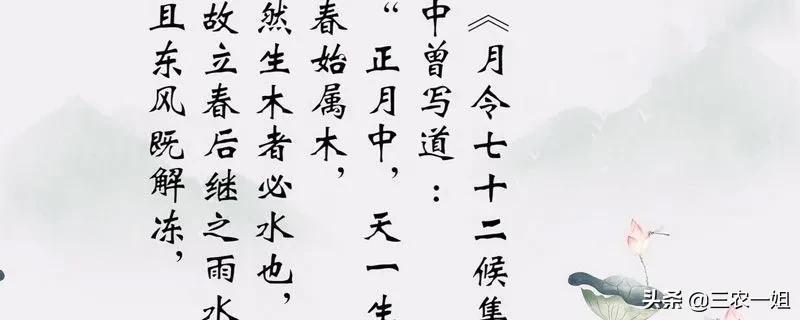 《月令七十二候集
中曾写道：
“正月中，天一生
春始属木，
然生木者必水也，
故立春后继之雨水
且东风既解冻，
头条 @三农一姐